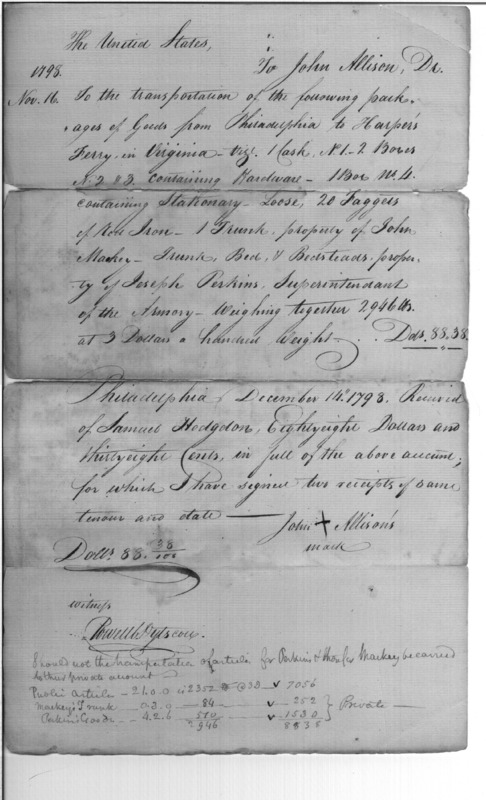 The United States,
To John Allison, Dr.
1798.
Nov. 16. To the transportation of the following pack-
ages of Goods from Philadelphia to Harper's
Ferry, in Virginia – viz. 1 Cask, No 1 – 2 Boxes
No 2 & 3 containing Hardware – 1 Box No. 4.
containing Stationary – Loose, 20 Faggots
of Rod Iron – 1 Trunk, property of John
Mackey – Trunk, Bed, & Bedsteads, proper-
ty of Joseph Perkins, Superintendant
of the Armory – Weighing together 2946 lbs.
at 3 Dollars a hundred Weight. Dols. 88.38.
Philadelphia, December 14. 1798. Received
of Samuel Hodgdon, Eightyeight Dollars and
thirtyeight Cents, in full of the above account;
for which I have signed two receipts of same
tenour and date — John + Allison's
mark
Dolls 88. 38/100
witness
Should not the transportation of articles for Perkins & for Mackey be carried
to their private account
Public Articles – 21.0.0 is 2352 @ 3D ✓ 7056
Mackey's Trunk – 0.3.0 — 84 — ✓ 252 } Private —
Perkins Goods — 4.2.6 510 ✓ 1530
2946 8838